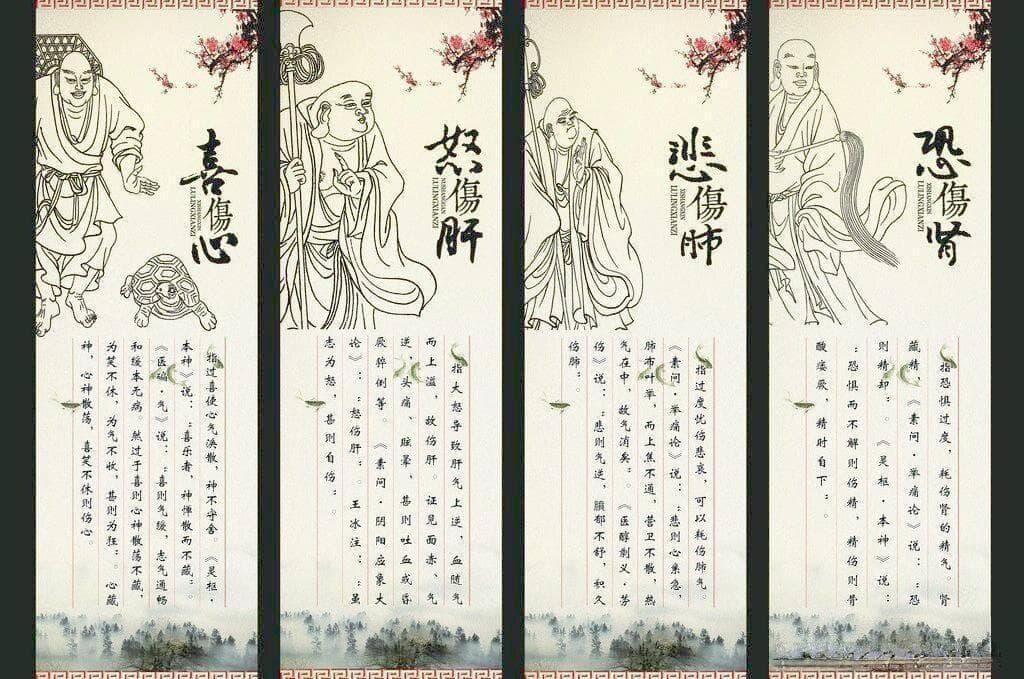 喜傷心
XISHANGXIN
LULINGXIANZI
指过喜使心气涣散，神不守舍。《灵枢·
本神》说：:喜乐者，神惮散而不藏。:
《医碥·气》说：:喜则气缓，志气通畅
和缓本无病。然过于喜则心神散荡不藏，
为笑不休，为气不收，甚则为狂。:心藏
神，心神散荡，喜笑不休则伤心。
怒傷肝
NUSHANGGAN
LULINGXIANZI
指大怒导致肝气上逆，血随气
而上溢，故伤肝。证见面赤、气
逆、头痛、眩晕，甚则吐血或昏
厥猝倒等。《素问·阴阳应象大
论》：:怒伤肝。:王冰注：:虽
志为怒，甚则自伤。:
悲傷肺
XISHANGXIN
LULINGXIANZI
指过度忧伤悲哀，可以耗伤肺气。
《素问·举痛论》说：:悲则心系急，
肺布叶举，而上焦不通，营卫不散，热
气在中，故气消矣。:《医醇剩义·劳
伤》说：:悲则气逆，膹郁不舒，积久
伤肺。:
恐傷肾
XISHANGXIN
LULINGXIANZI
指恐惧过度，耗伤肾的精气。肾
藏精，《素问·举痛论》说：:恐
则精却。:《灵枢·本神》说：
:恐惧而不解则伤精，精伤则骨
酸痿厥，精时自下。: